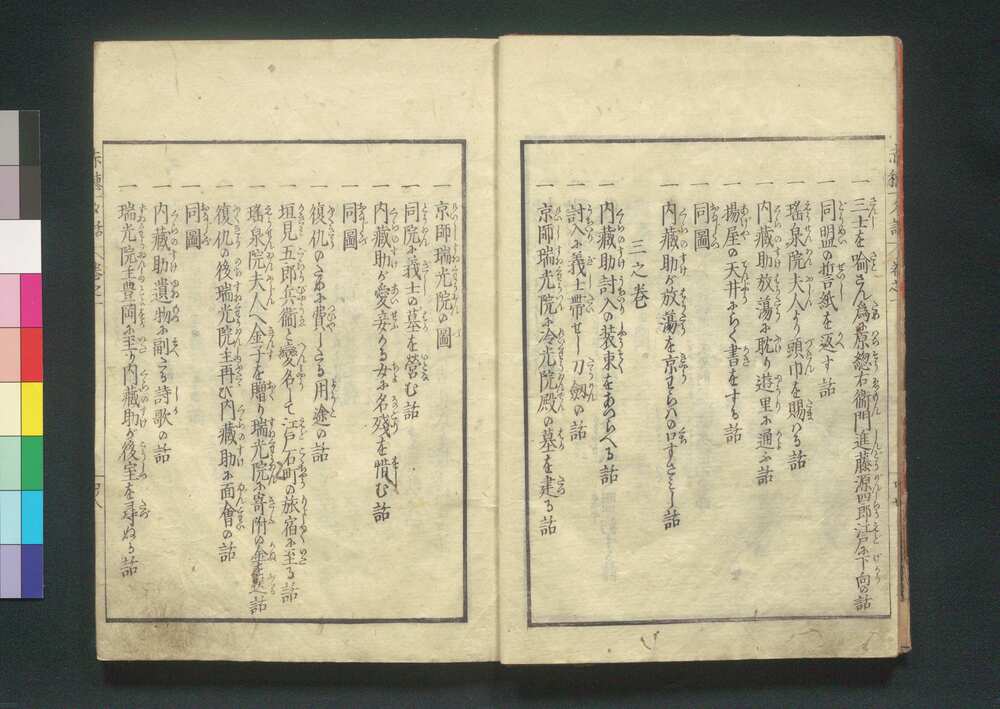 一 三士を喩さん爲に原惣右衛門進藤源四郎江戸に下向の話
一 同盟の誓紙を返す話
一 瑤泉院夫人より頭巾を賜はる話
一 内藏助放蕩に耽り遊里に通ふ話
一 揚屋の天井にらく書をする話
一 同圖
一 内藏助が放蕩を京わらべの口すさみし話
三之巻
一 内藏助討入の装束をあつらへる話
一 討入に義士帯せし刀劔の話
一 京師瑞光院に冷光院殿の墓を建る話
一 京師瑞光院の圖
一 同院に義士の墓を營む話
一 内藏助が愛妾かる女に名残を惜む話
一 同圖
一 復仇のために費したる用途の話
一 垣見五郎兵衞と變名して江戸石町の旅宿に至る話
一 瑤泉院夫人へ金子を贈り瑞光院に寄附の金を送る話
一 復仇の後瑞光院主再び内藏助に面會の話
一 同圖
一 内藏助遺物に副たる詩歌の話
一 瑞光院主豊岡に至り内藏助が後室を尋ぬる話